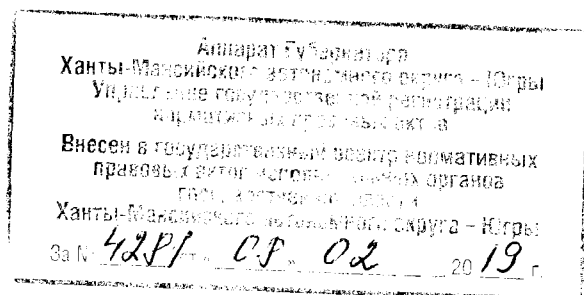 Аппарат Губернатора
Ханты-Мансийского автономного округа – Югры
Управление государственной регистрации
нормативных правовых актов
Внесен в государственный реестр нормативных
правовых актов исполнительных органов
государственной власти
Ханты-Мансийского автономного округа – Югры
За № от « » 02 2019 г.